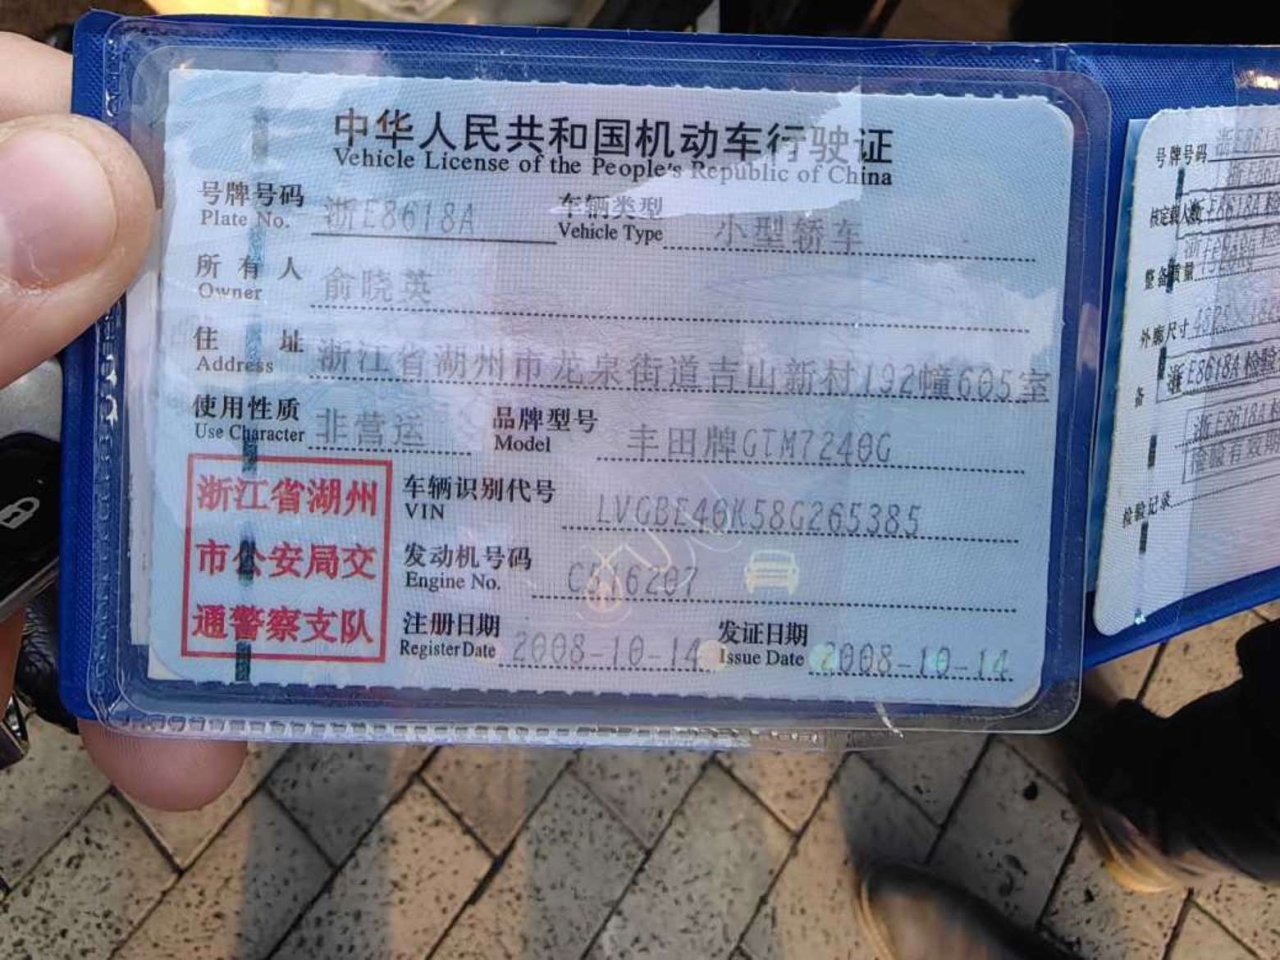 中华人民共和国机动车行驶证
Vehicle License of the People's Republic of China
号牌号码 浙E8618A 车辆类型 小型轿车
Plate No. Vehicle Type
所有人 俞晓英
Owner
住址 浙江省湖州市龙泉街道吉山新村192幢605室
Address
使用性质 非营运 品牌型号 丰田牌GTM7240G
Use Character Model
浙江省湖州
市公安局交
通警察支队
车辆识别代号 LVGBE40K58G265385
VIN
发动机号码 C516207
Engine No.
注册日期 2008-10-14 发证日期 2008-10-14
Register Date Issue Date
号牌号码
核定载人数
整备质量
外廓尺寸
备
浙E8618A 检验
检验有效期
检验记录